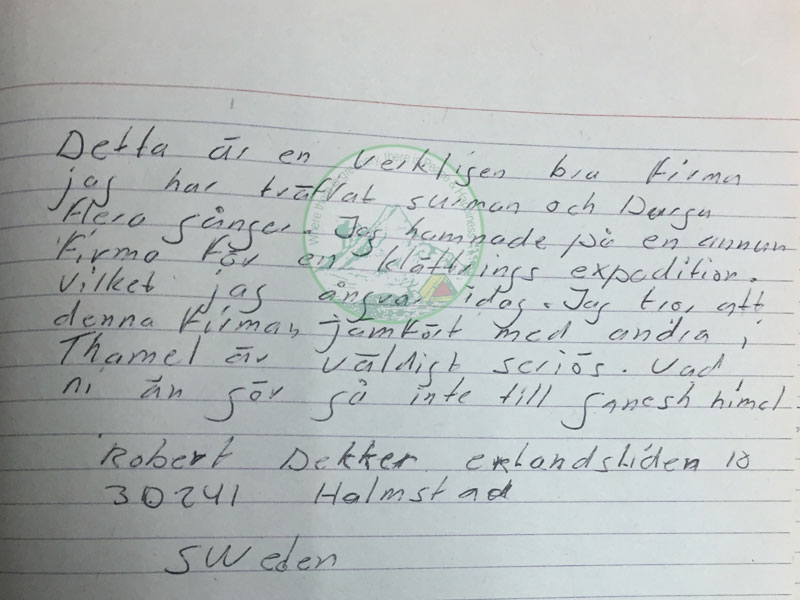 Detta är en verkligen bra firma
jag har träffat surman och Durga
flera gånger. Jag hamnade på en annan
firma för en klättrings expedition.
vilket jag ångrar idag. Jag tror att
denna firman jämfört med andra i
Thamel är väldigt seriös. Vad
ni än gör gå inte till ganesh himal
Robert Dekker erlandsliden 10
30241 Halmstad
SWeden